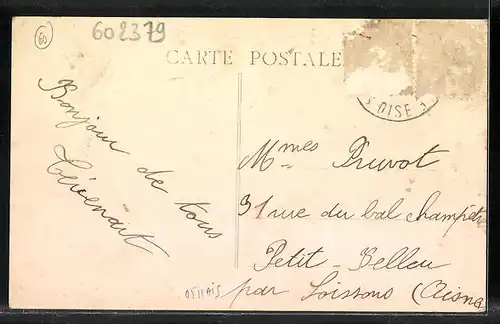 60
602379
CARTE POSTALE
OISE
Bonjour de tous
Mmes Pruvot
31 rue du bal champêtre
Petit - Belleu
par Soissons (Aisne